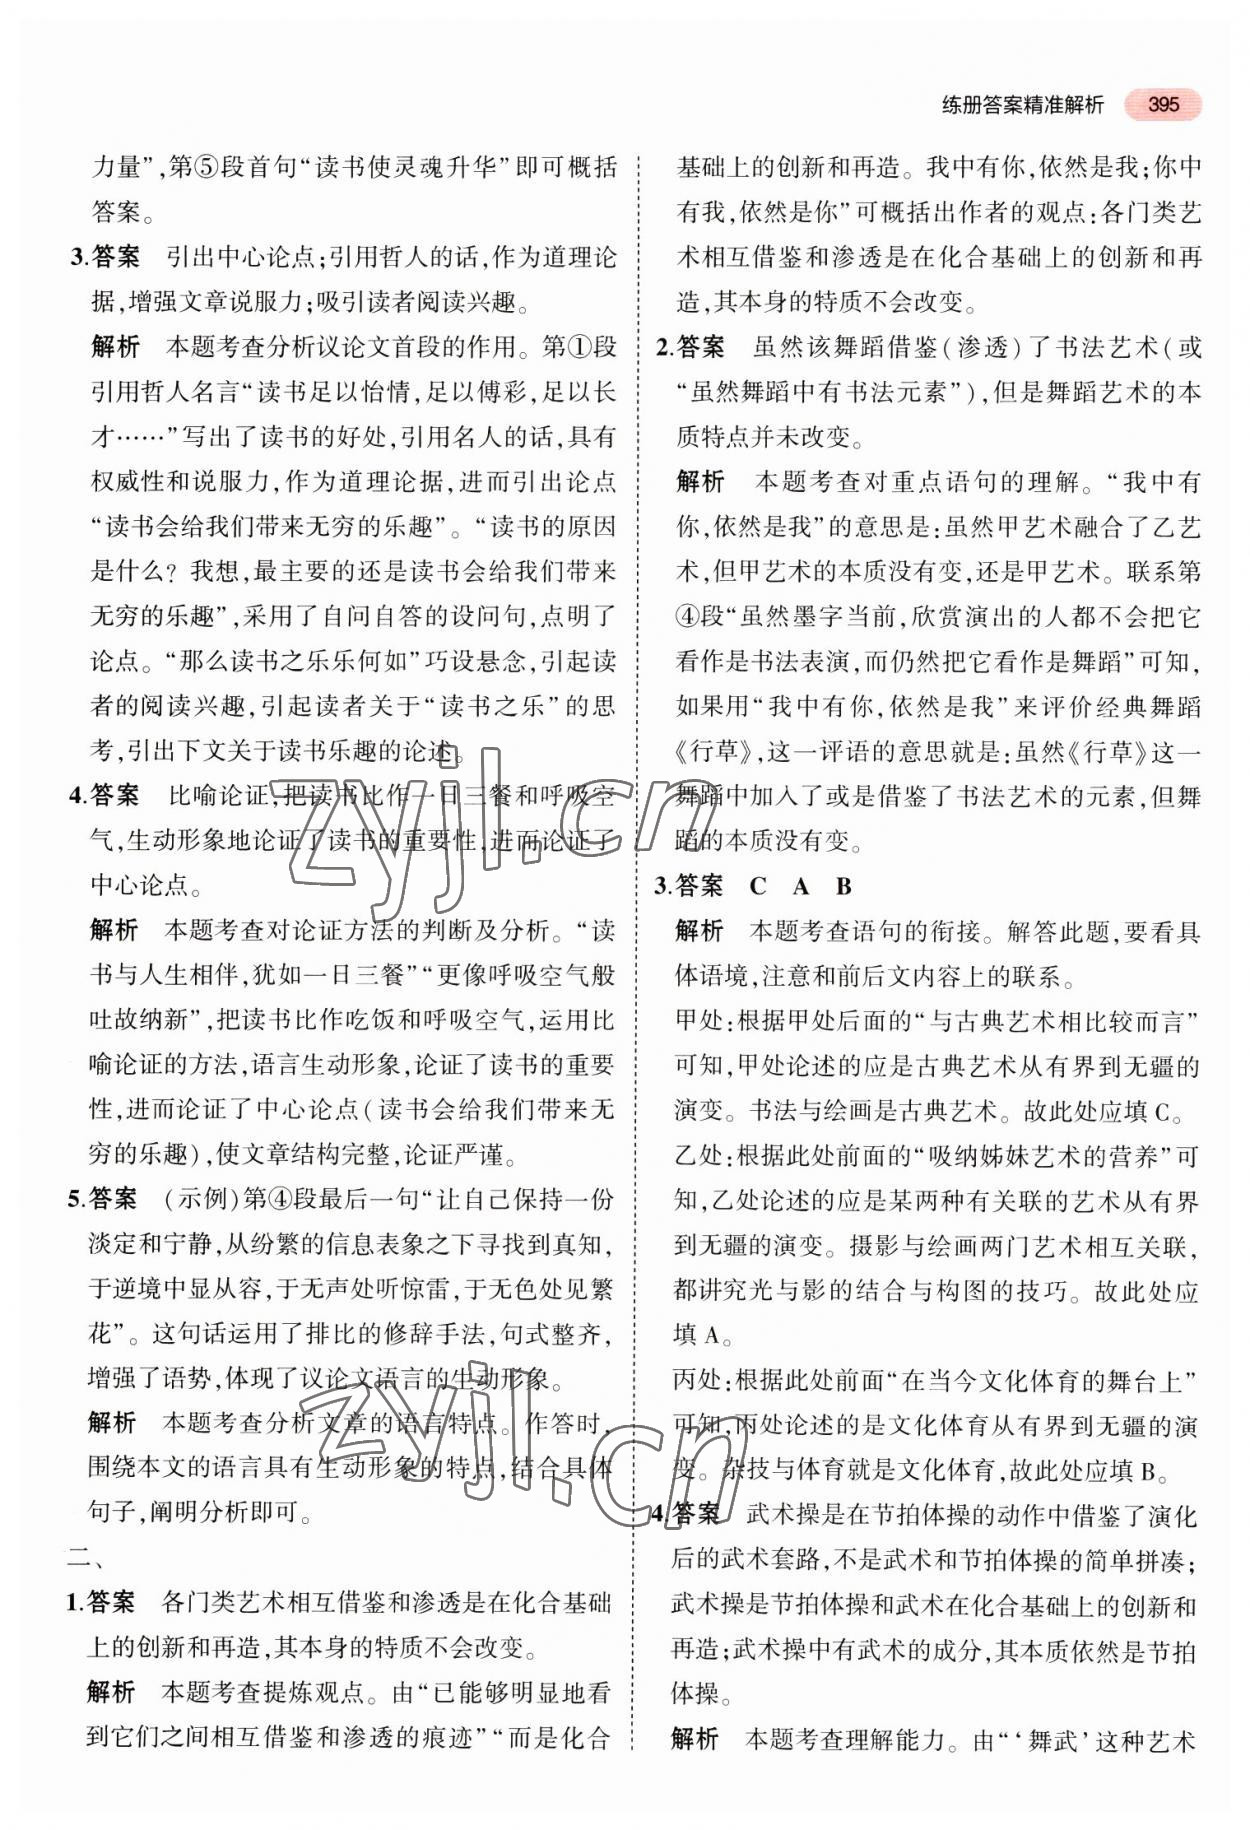 练册答案精准解析 395
力量”，第⑤段首句“读书使灵魂升华”即可概括
答案。
3.答案 引出中心论点；引用哲人的话，作为道理论
据，增强文章说服力；吸引读者阅读兴趣。
解析 本题考查分析议论文首段的作用。第①段
引用哲人名言“读书足以怡情，足以傅彩，足以长
才……”写出了读书的好处，引用名人的话，具有
权威性和说服力，作为道理论据，进而引出论点
“读书会给我们带来无穷的乐趣”。“读书的原因
是什么？我想，最主要的还是读书会给我们带来
无穷的乐趣”，采用了自问自答的设问句，点明了
论点。“那么读书之乐乐何如”巧设悬念，引起读
者的阅读兴趣，引起读者关于“读书之乐”的思
考，引出下文关于读书乐趣的论述。
4.答案 比喻论证，把读书比作一日三餐和呼吸空
气，生动形象地论证了读书的重要性，进而论证了
中心论点。
解析 本题考查对论证方法的判断及分析。“读
书与人生相伴，犹如一日三餐”“更像呼吸空气般
吐故纳新”，把读书比作吃饭和呼吸空气，运用比
喻论证的方法，语言生动形象，论证了读书的重要
性，进而论证了中心论点（读书会给我们带来无
穷的乐趣），使文章结构完整，论证严谨。
5.答案 （示例）第④段最后一句“让自己保持一份
淡定和宁静，从纷繁的信息表象之下寻找到真知，
于逆境中显从容，于无声处听惊雷，于无色处见繁
花”。这句话运用了排比的修辞手法，句式整齐，
增强了语势，体现了议论文语言的生动形象。
解析 本题考查分析文章的语言特点。作答时，
围绕本文的语言具有生动形象的特点，结合具体
句子，阐明分析即可。
二、
1.答案 各门类艺术相互借鉴和渗透是在化合基础
上的创新和再造，其本身的特质不会改变。
解析 本题考查提炼观点。由“已能够明显地看
到它们之间相互借鉴和渗透的痕迹”“而是化合
基础上的创新和再造。我中有你，依然是我；你中
有我，依然是你”可概括出作者的观点：各门类艺
术相互借鉴和渗透是在化合基础上的创新和再
造，其本身的特质不会改变。
2.答案 虽然该舞蹈借鉴（渗透）了书法艺术（或
“虽然舞蹈中有书法元素”），但是舞蹈艺术的本
质特点并未改变。
解析 本题考查对重点语句的理解。“我中有
你，依然是我”的意思是：虽然甲艺术融合了乙艺
术，但甲艺术的本质没有变，还是甲艺术。联系第
④段“虽然墨字当前，欣赏演出的人都不会把它
看作是书法表演，而仍然把它看作是舞蹈”可知，
如果用“我中有你，依然是我”来评价经典舞蹈
《行草》，这一评语的意思就是：虽然《行草》这一
舞蹈中加入了或是借鉴了书法艺术的元素，但舞
蹈的本质没有变。
3.答案 C A B
解析 本题考查语句的衔接。解答此题，要看具
体语境，注意和前后文内容上的联系。
甲处：根据甲处后面的“与古典艺术相比较而言”
可知，甲处论述的应是古典艺术从有界到无疆的
演变。书法与绘画是古典艺术。故此处应填C。
乙处：根据此处前面的“吸纳姊妹艺术的营养”可
知，乙处论述的应是某两种有关联的艺术从有界
到无疆的演变。摄影与绘画两门艺术相互关联，
都讲究光与影的结合与构图的技巧。故此处应
填A。
丙处：根据此处前面“在当今文化体育的舞台上”
可知，丙处论述的是文化体育从有界到无疆的演
变。杂技与体育就是文化体育，故此处应填B。
4.答案 武术操是在节拍体操的动作中借鉴了演化
后的武术套路，不是武术和节拍体操的简单拼凑；
武术操是节拍体操和武术在化合基础上的创新和
再造；武术操中有武术的成分，其本质依然是节拍
体操。
解析 本题考查理解能力。由“‘舞武’这种艺术
zyjl.cn
zyjl.cn